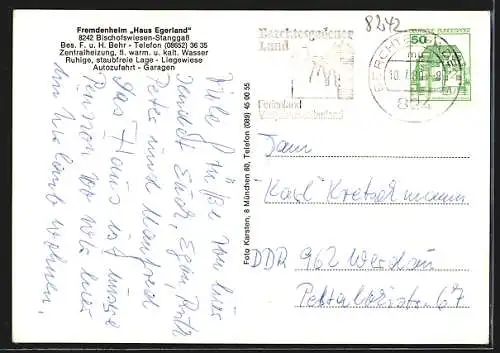 Fremdenheim „Haus Egerland"
8242 Bischofswiesen-Stanggaß
Bes. F. u. H. Behr - Telefon (08652) 36 35
Zentralheizung, fl. warm. u. kalt. Wasser
Ruhige, staubfreie Lage - Liegewiese
Autozufahrt - Garagen
Viele Grüße von hier
sendet Euch, Egon, Ruth
Peter und Manfred
Das Haus ist unsere
Pension wo wir hier
im Urlaub wohnen.
Foto Karsten, 8 München 80, Telefon (089) 45 00 55
8242
Berchtesgadener
Land
Ferienland
DEUTSCHE BUNDESPOST
50
BERCHTESGADEN
10.7.80
824
Fam.
Karl Kretschmann
DDR 962 Werdau
Pestalozzistr. 67